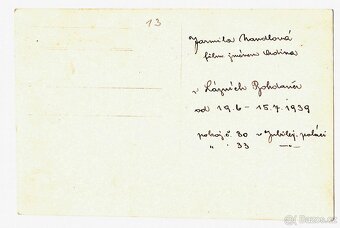 13
Jarmila Mandlová
film. jménem Adina
v Lázních Bohdaneč
od 19.6 - 15.7.1939
pokoj č. 30 v Jubilej. paláci
" " 33 —"—
Bazos.cz